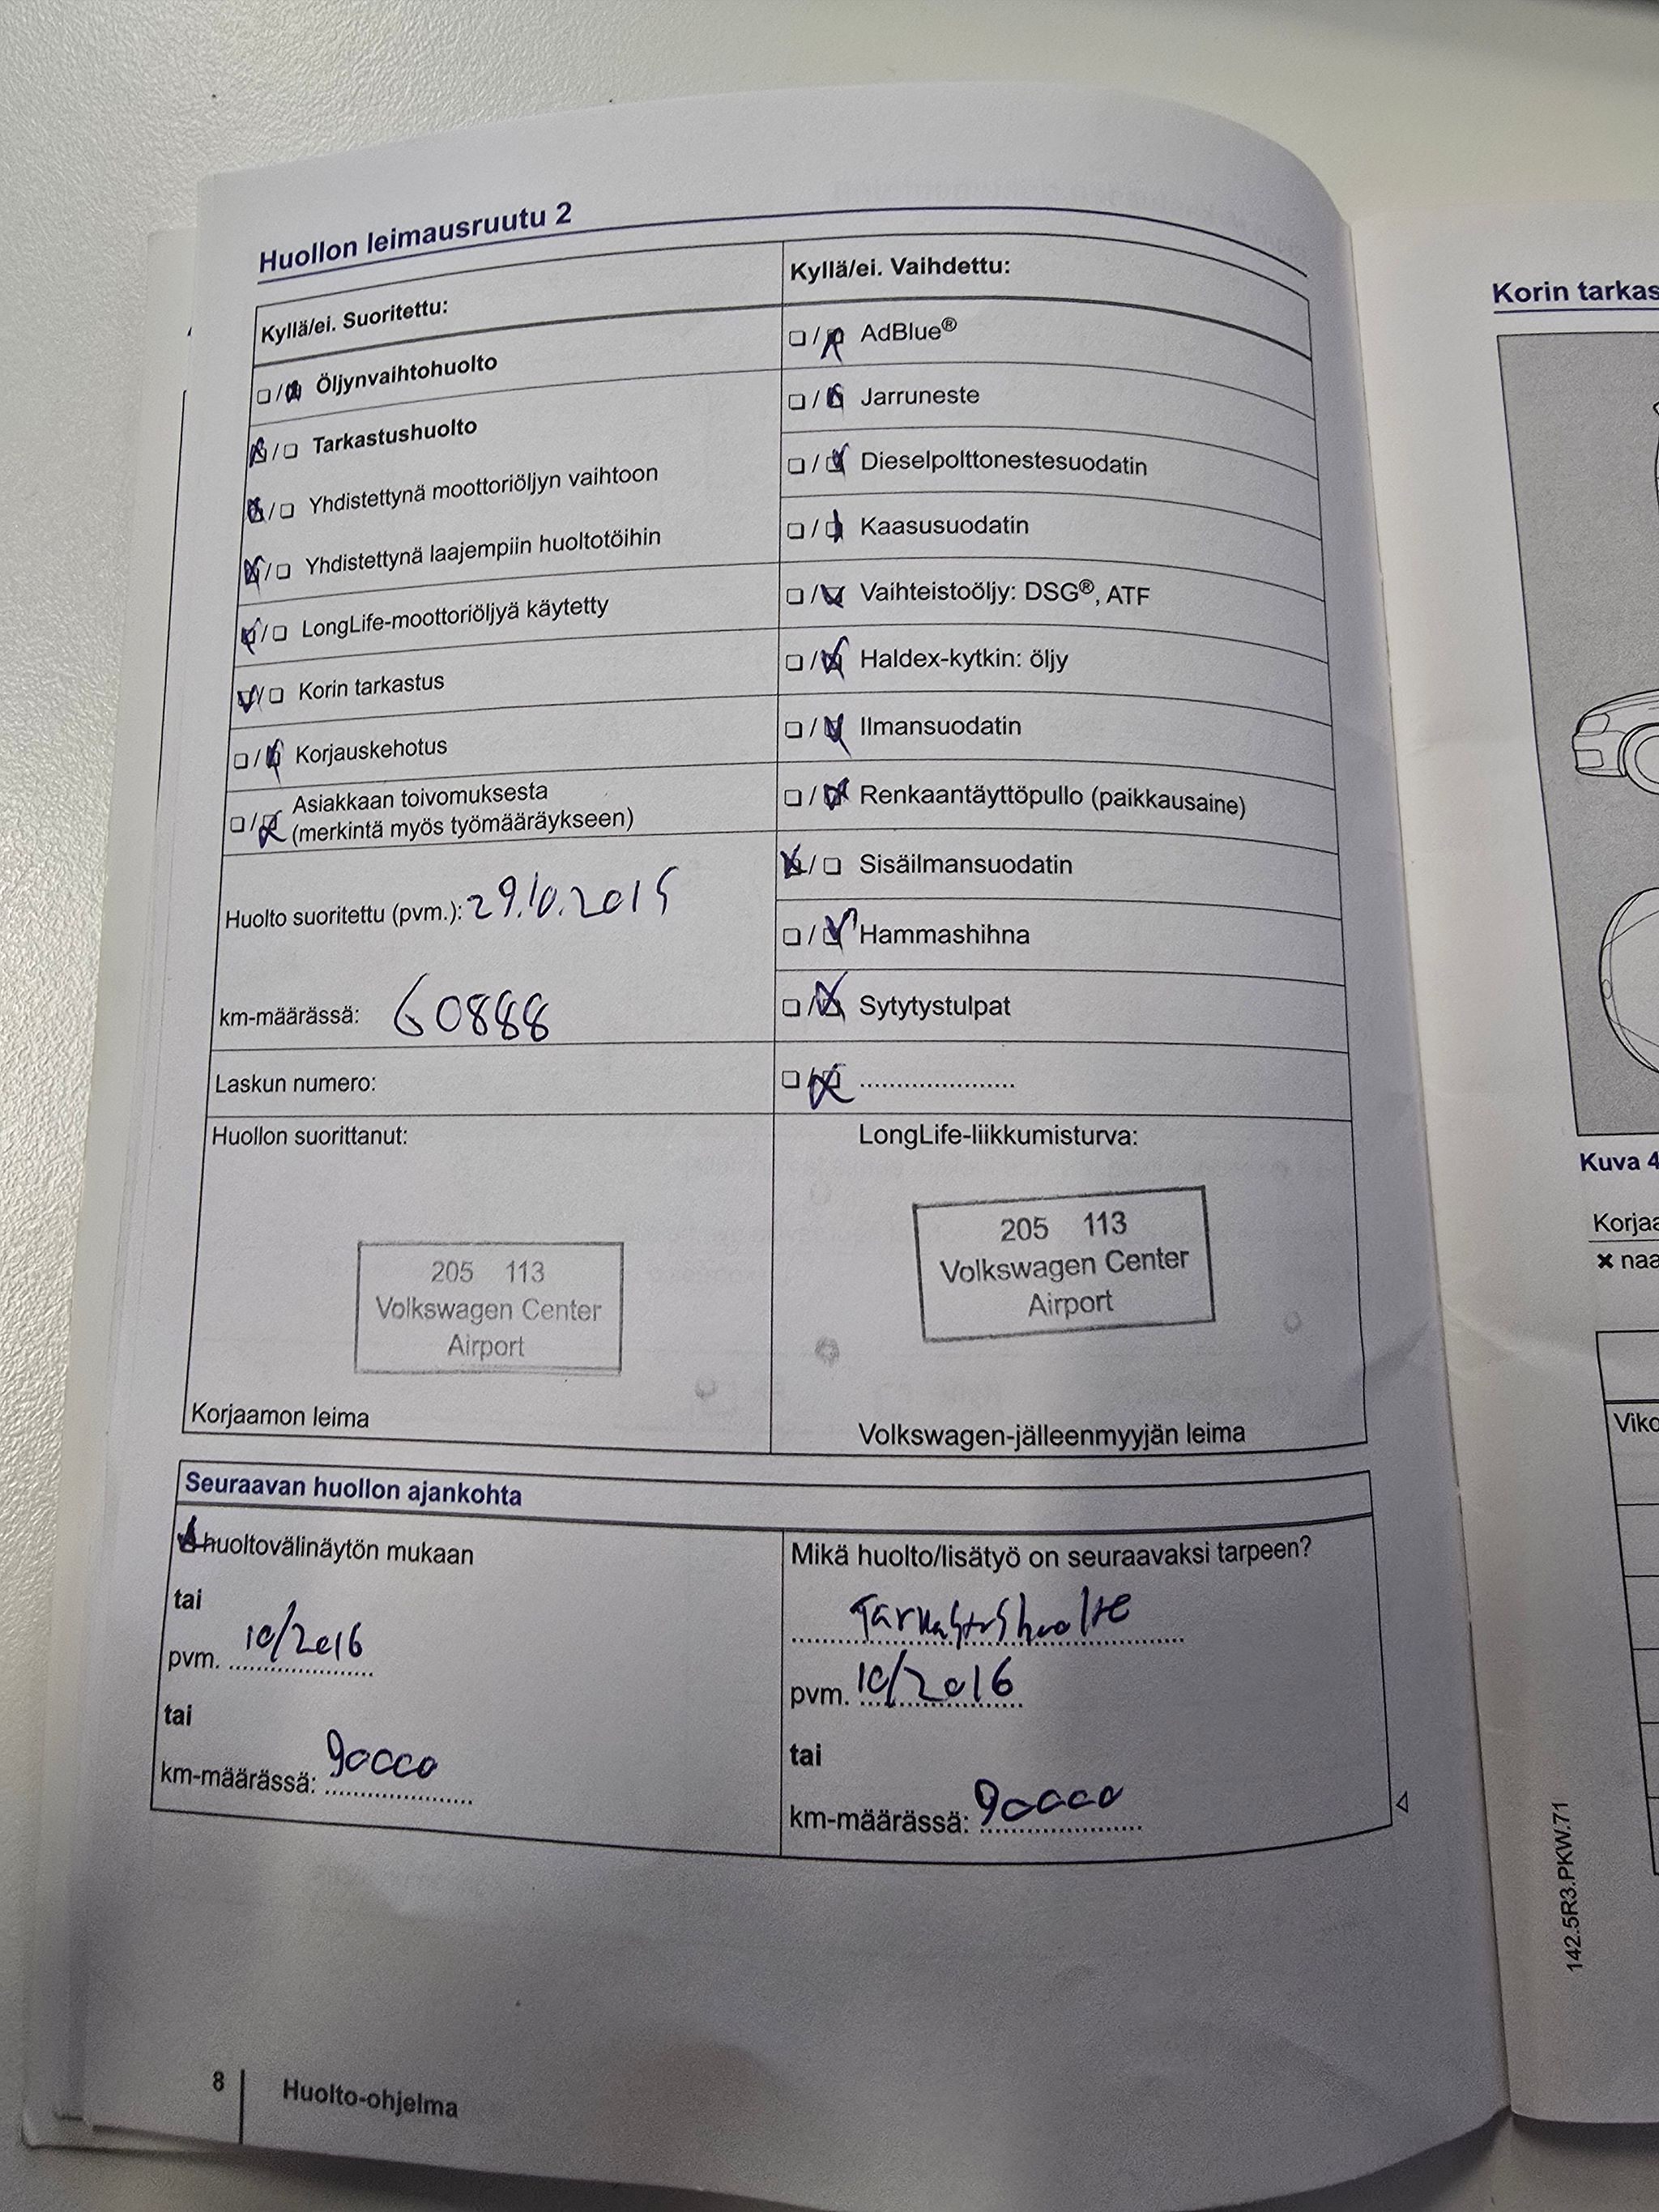 Huollon leimausruutu 2
Kyllä/ei. Suoritettu:
Öljynvaihtohuolto
Tarkastushuolto
Yhdistettynä moottoriöljyn vaihtoon
Yhdistettynä laajempiin huoltotöihin
LongLife-moottoriöljyä käytetty
Korin tarkastus
Korjauskehotus
Asiakkaan toivomuksesta
(merkintä myös työmääräykseen)
Huolto suoritettu (pvm.): 29.10.2015
km-määrässä: 60888
Laskun numero:
Huollon suorittanut:
205 113
Volkswagen Center
Airport
Korjaamon leima
Kyllä/ei. Vaihdettu:
AdBlue®
Jarruneste
Dieselpolttonestesuodatin
Kaasusuodatin
Vaihteistoöljy: DSG®, ATF
Haldex-kytkin: öljy
Ilmansuodatin
Renkaantäyttöpullo (paikkausaine)
Sisäilmansuodatin
Hammashihna
Sytytystulpat
LongLife-liikkumisturva:
205 113
Volkswagen Center
Airport
Volkswagen-jälleenmyyjän leima
Seuraavan huollon ajankohta
huoltovälinäytön mukaan
tai
pvm. 10/2016
tai
km-määrässä: 90000
Mikä huolto/lisätyö on seuraavaksi tarpeen?
Tarkastushuolto
pvm. 10/2016
tai
km-määrässä: 90000
8 Huolto-ohjelma
Korin tarkas
Kuva 4
Korjaa
✖ naa
Viko
142.5R3.PKW.71